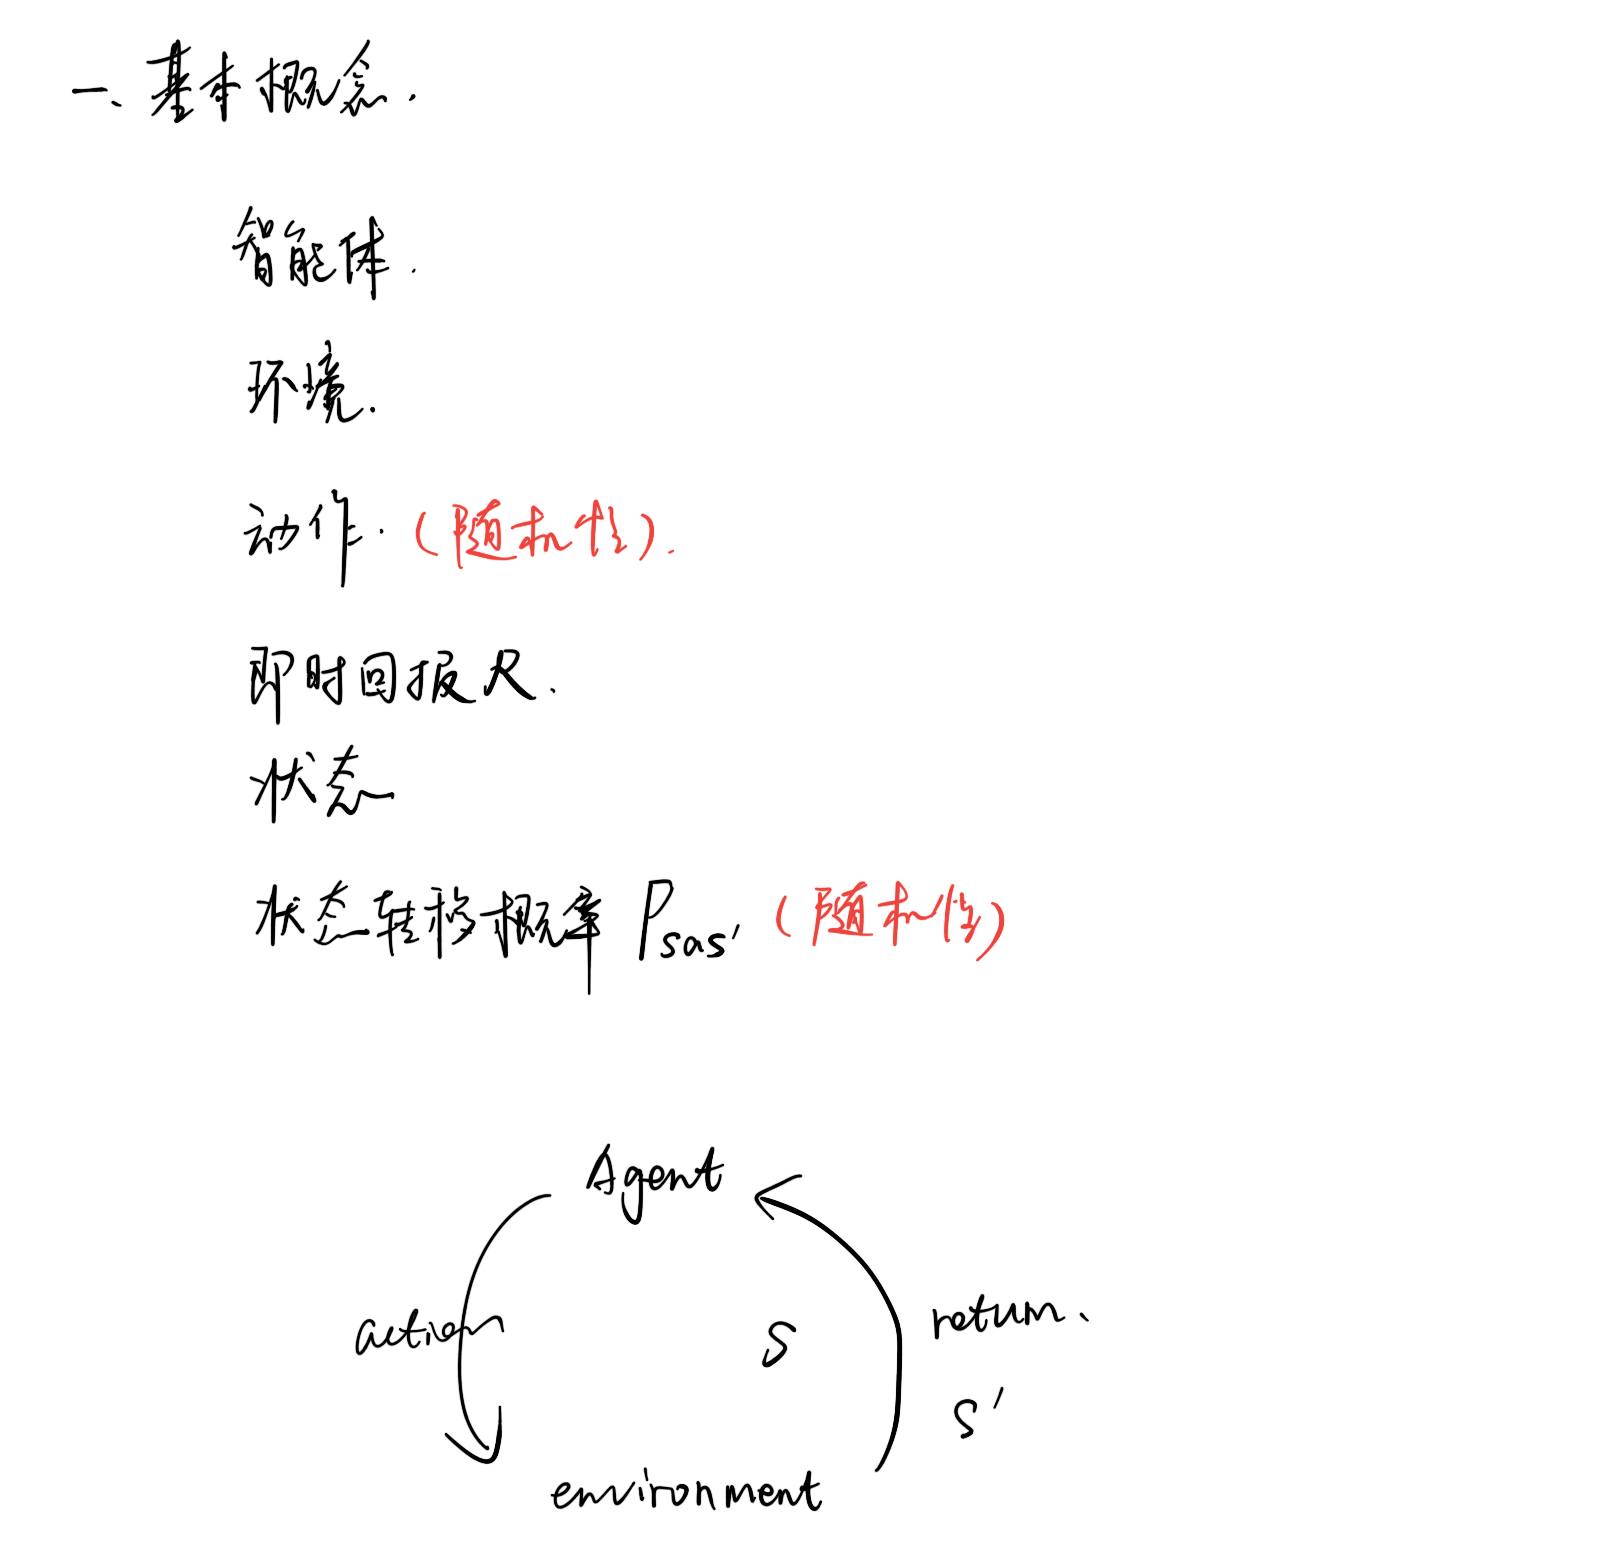 一、基本概念.
智能体.
环境.
动作.(随机性).
即时回报R.
状态
状态转移概率 Psas' (随机性)
Agent
action
S
return.
S'
environment